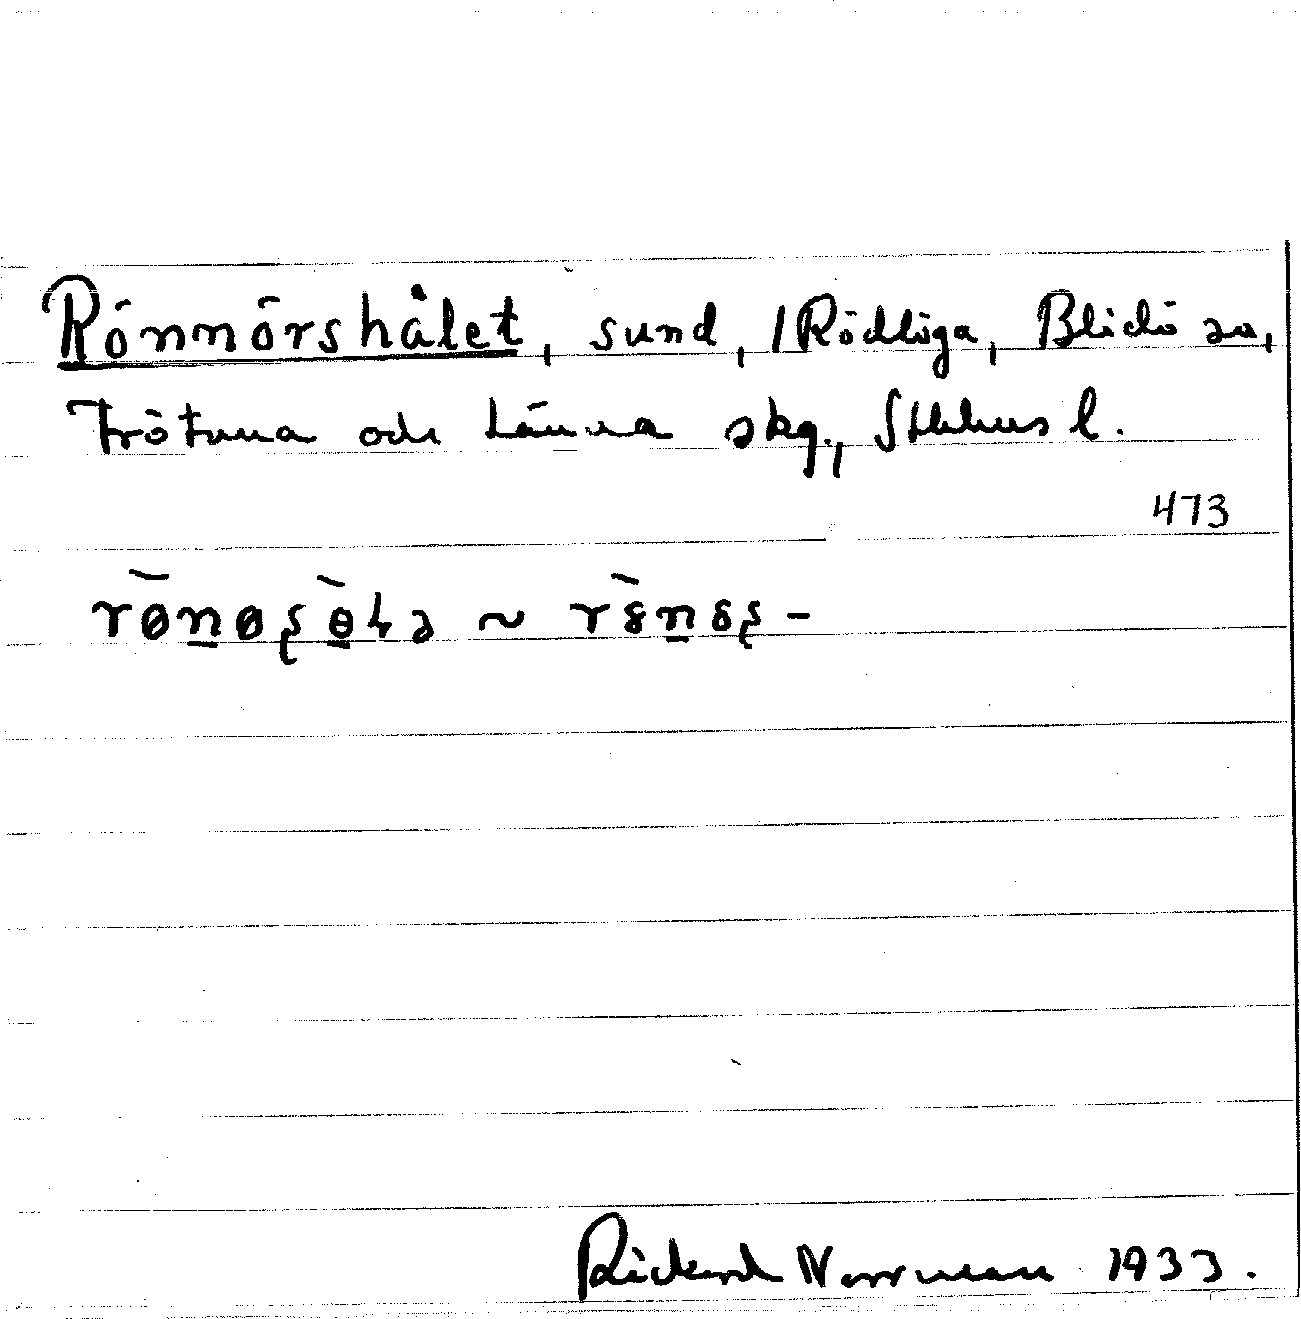 Rönnörshålet, sund, /Rödlöga, Blidö sn,
Frötuna och Länna skg., Sthlms l.
473
Rickard Norrman 1933.